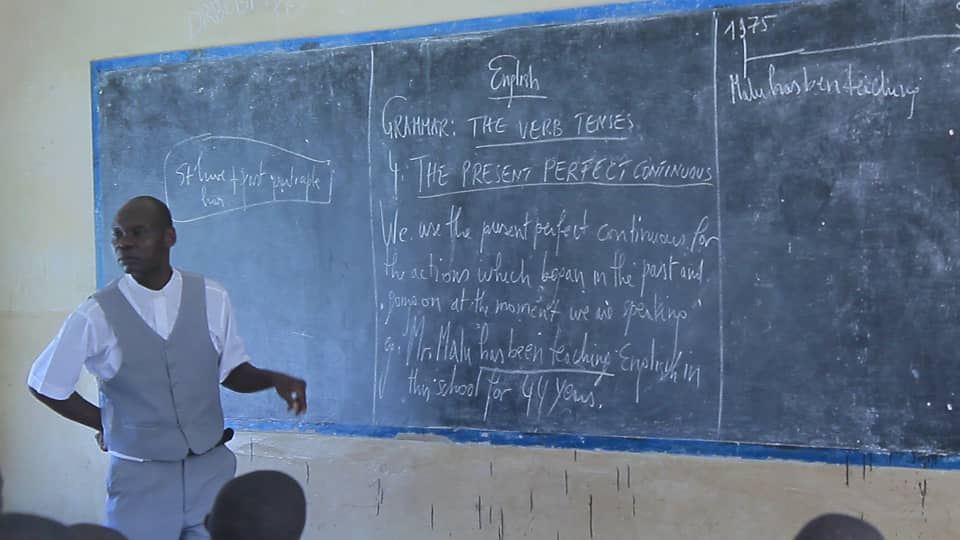 St have + past participle
has
English
GRAMMAR: THE VERB TENSES
4. THE PRESENT PERFECT CONTINUOUS
We use the present perfect continuous for
the actions which began in the past and
going on at the moment we are speaking
eg. Mr Malu has been teaching English in
this school for 44 years.
1975
Malu has been teaching